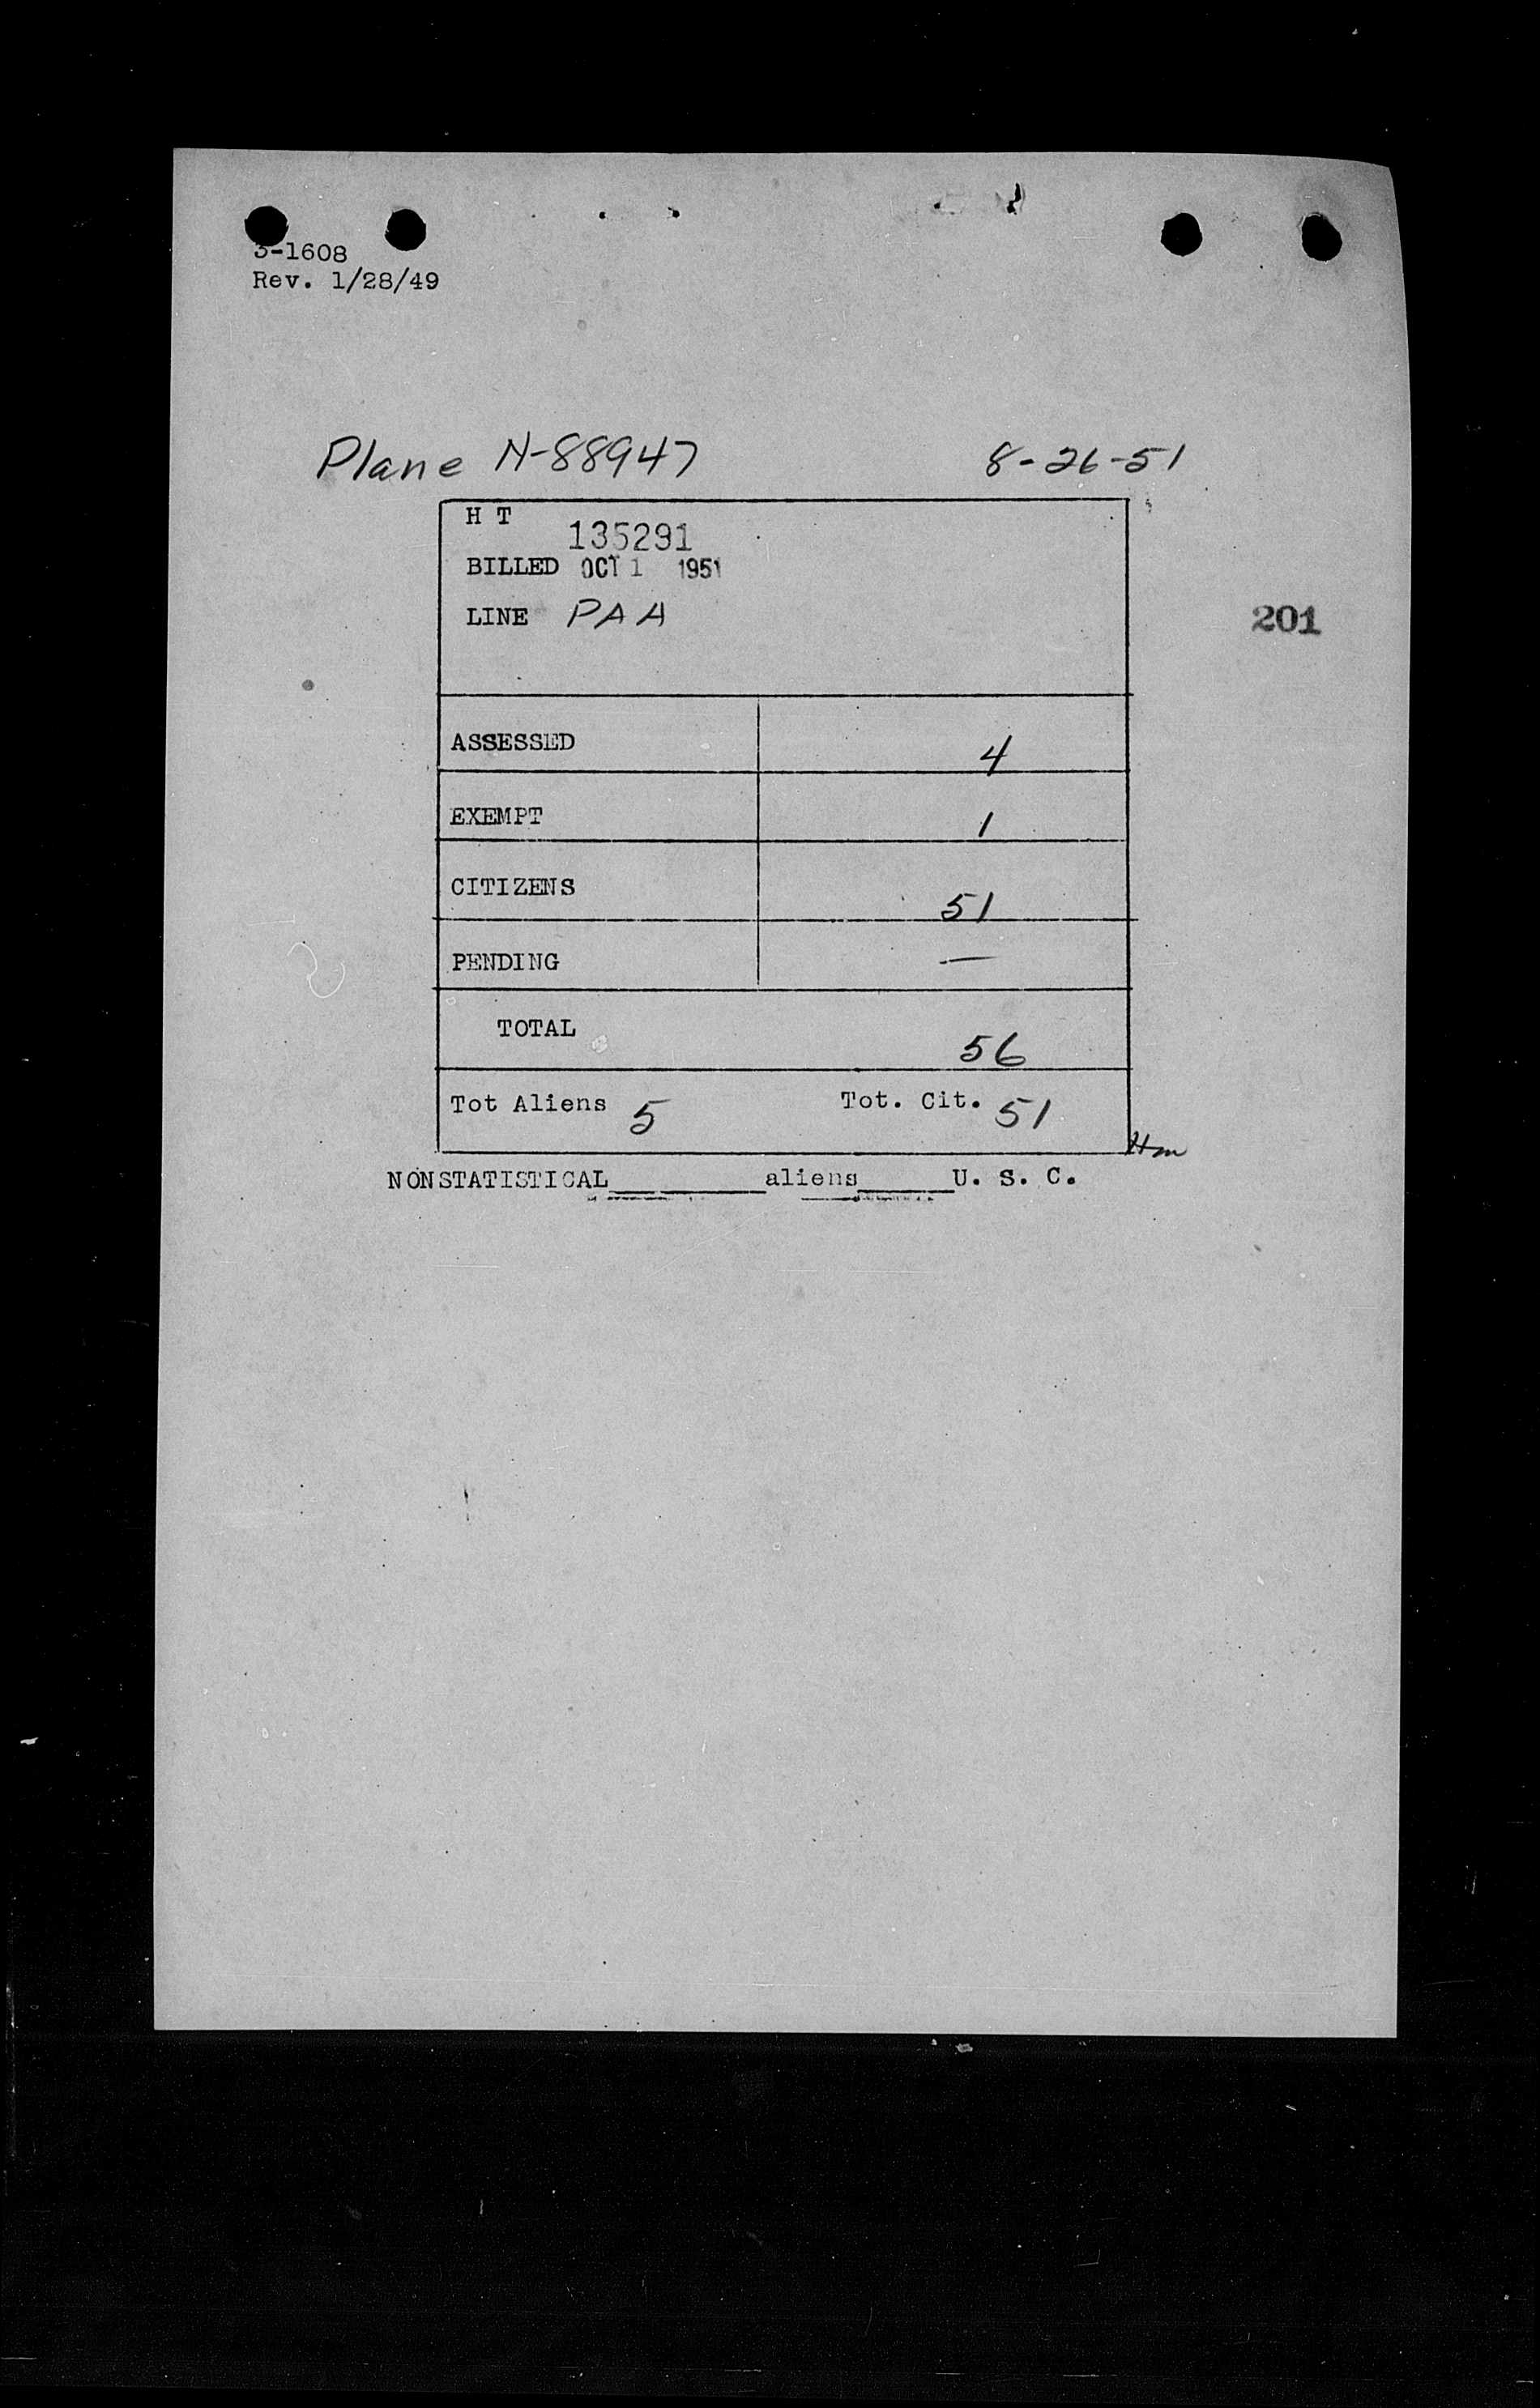 3-1608
Rev. 1/28/49
Plane N-88947 8-26-51
H T 135291
BILLED OCT 1 1951
LINE PAA
201
ASSESSED 4
EXEMPT 1
CITIZENS 51
PENDING —
TOTAL 56
Tot Aliens 5 Tot. Cit. 51
Hm
NONSTATISTICAL________aliens_____U. S. C.